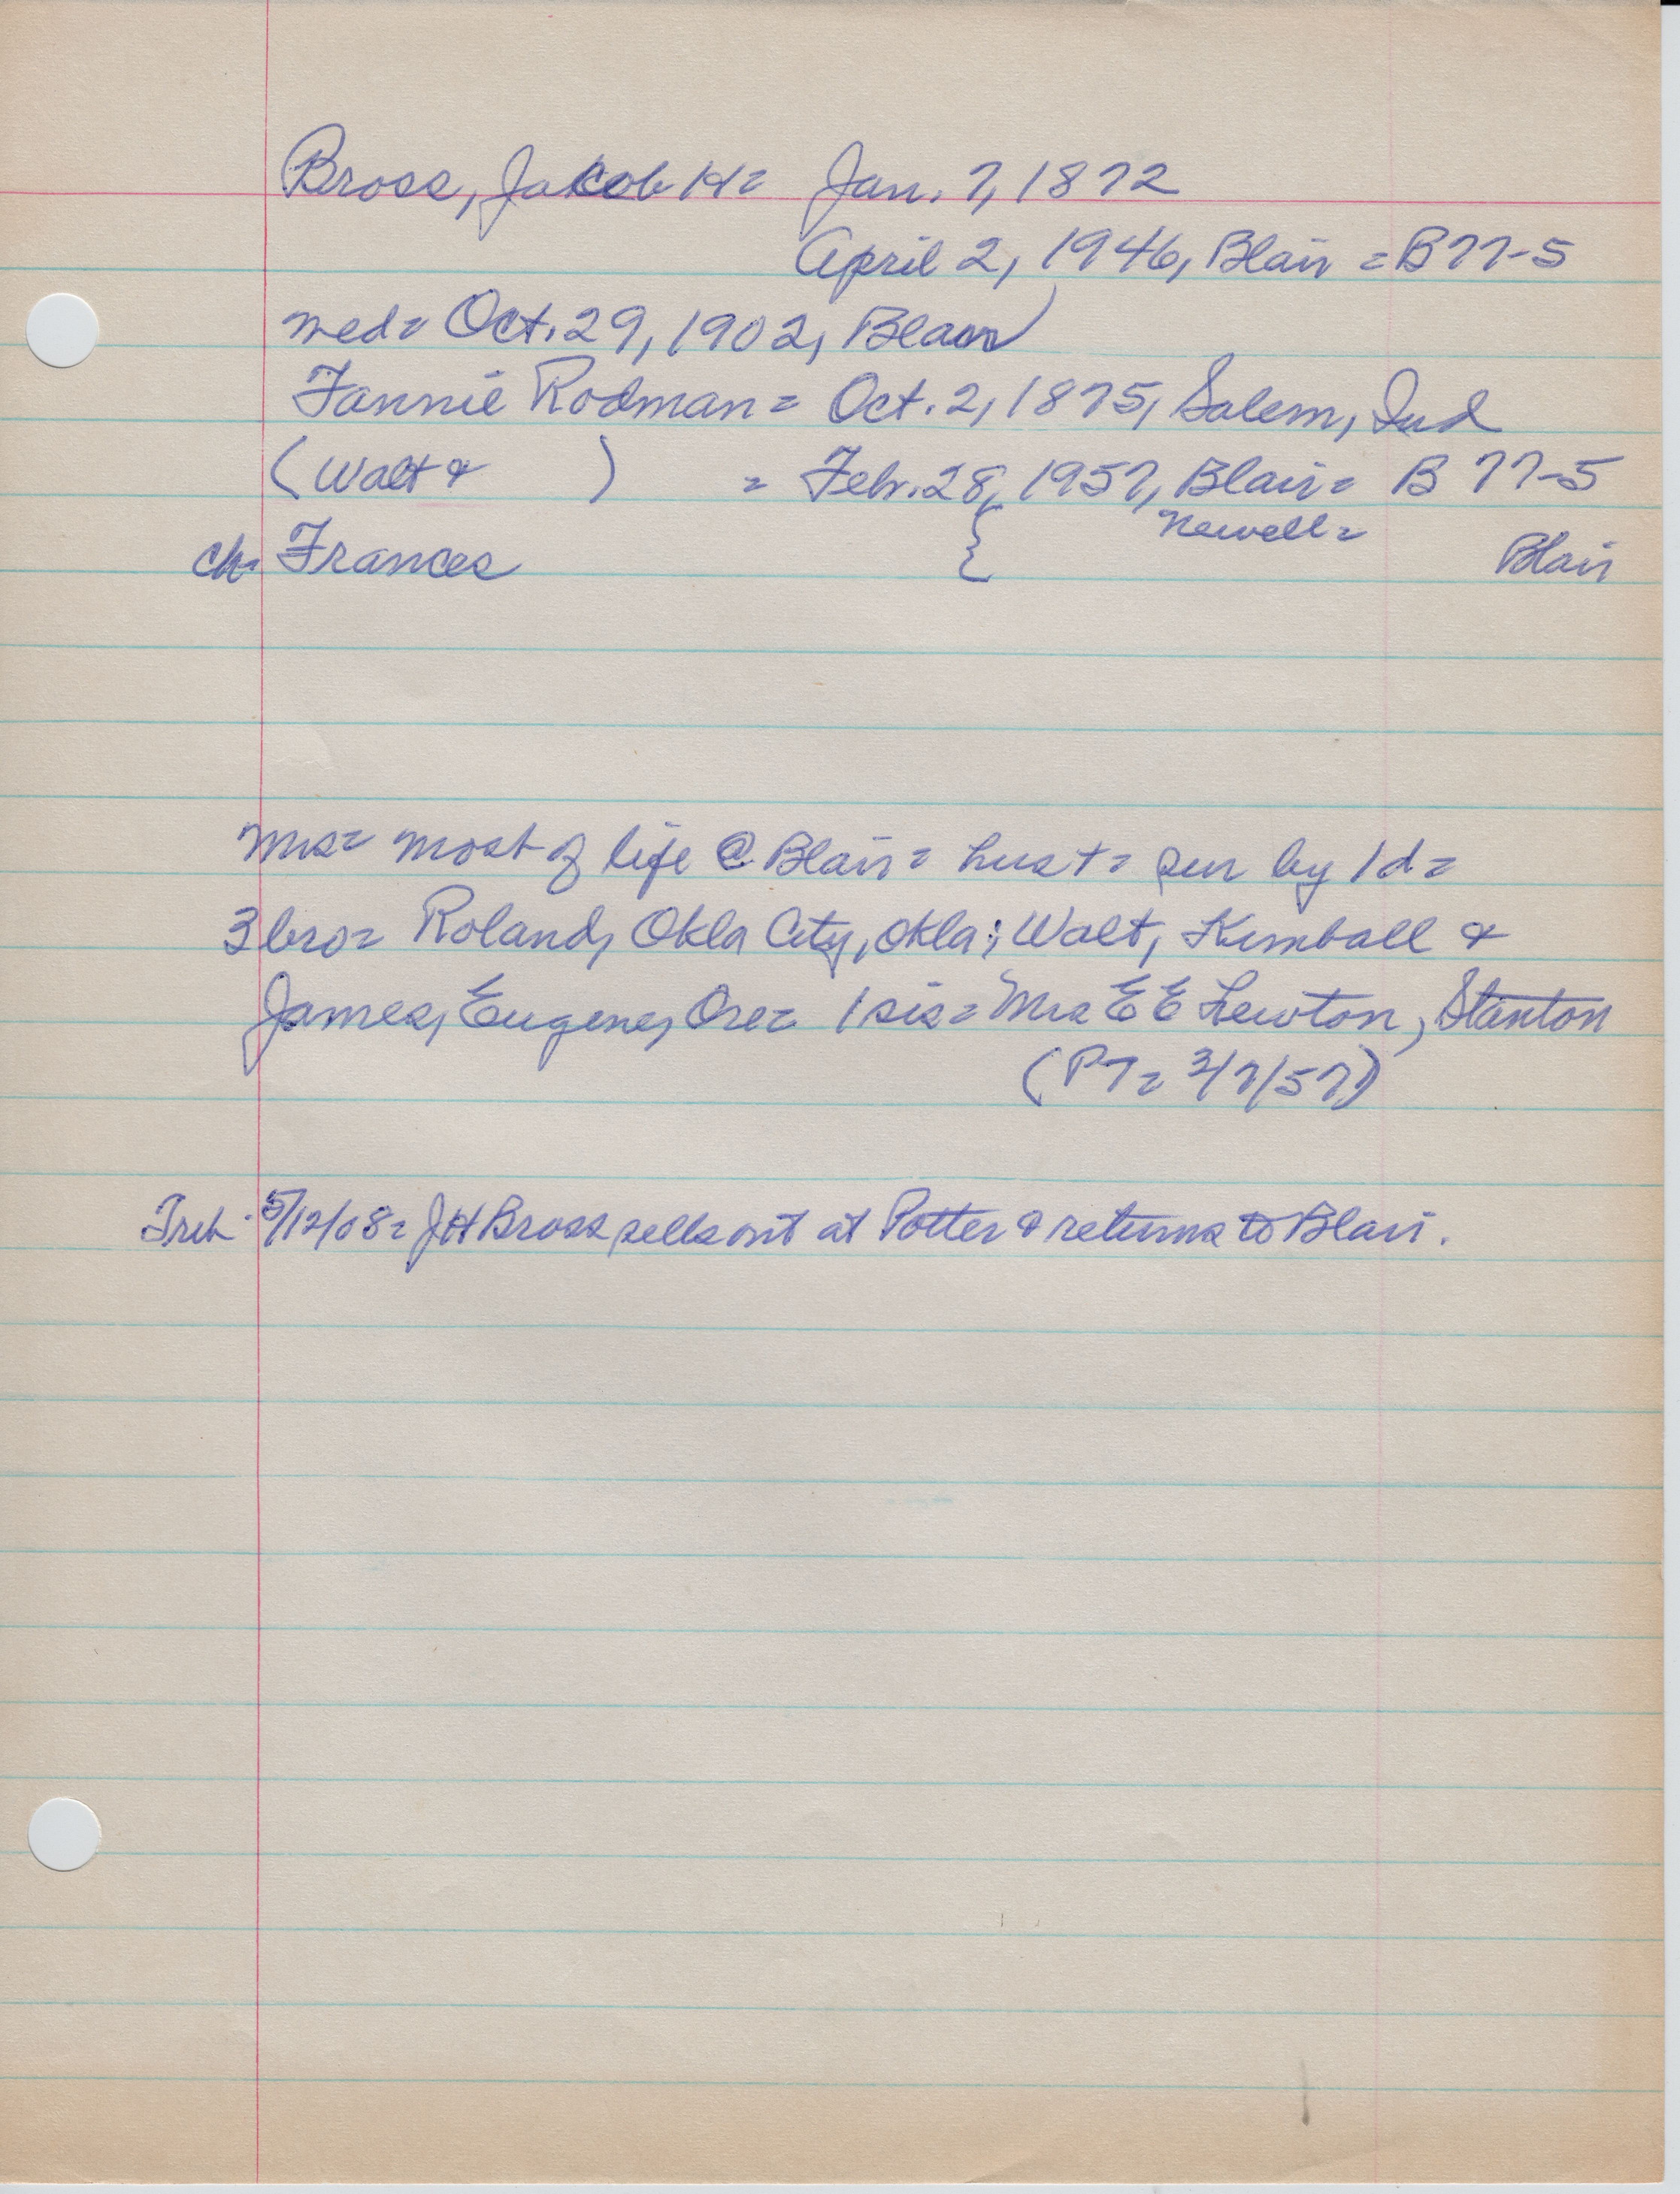 Bross, Jakob H= Jan. 7, 1872
April 2, 1946, Blair = B77-5
med= Oct. 29, 1902, Blair
Fannie Rodman = Oct. 2, 1875, Salem, Ind
(Walt & ) = Feb. 28, 1957, Blair= B 77-5
Newell=
ch= Frances { Blair
Mrs= most of life @ Blair= hus +=  sur by 1d=
3 bro= Roland, Okla City, Okla; Walt, Kimball &
James, Eugene, Ore= 1 sis= Mrs E E Lewton, Stanton
(PT= 3/7/57)
Trib 5/12/08= JH Bross sells out at Potter & returns to Blair.